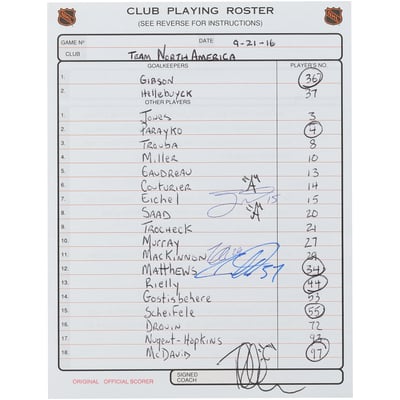 CLUB PLAYING ROSTER
(SEE REVERSE FOR INSTRUCTIONS)
GAME Nº DATE 9-21-16
CLUB TEAM NORTH AMERICA
GOALKEEPERS PLAYER'S NO.
1. GIBSON 36
2. Hellebuyck 37
OTHER PLAYERS
1. Jones 3
2. PARAYKO 4
3. TROUBA 8
4. Miller 10
5. GAUDREAU 13
6. COUTURIER "A" 14
7. Eichel 15 15
8. SAAD "A" 20
9. TROCHECK 21
10. MURRAY 27
11. MACKINNON 29
12. MATTHEWS 57 34
13. Rielly 44
14. Gostisbehere 53
15. Scheifele 55
16. DROUIN 72
17. Nugent-Hopkins 93
18. McDAVID "C" 97
ORIGINAL OFFICIAL SCORER SIGNED COACH